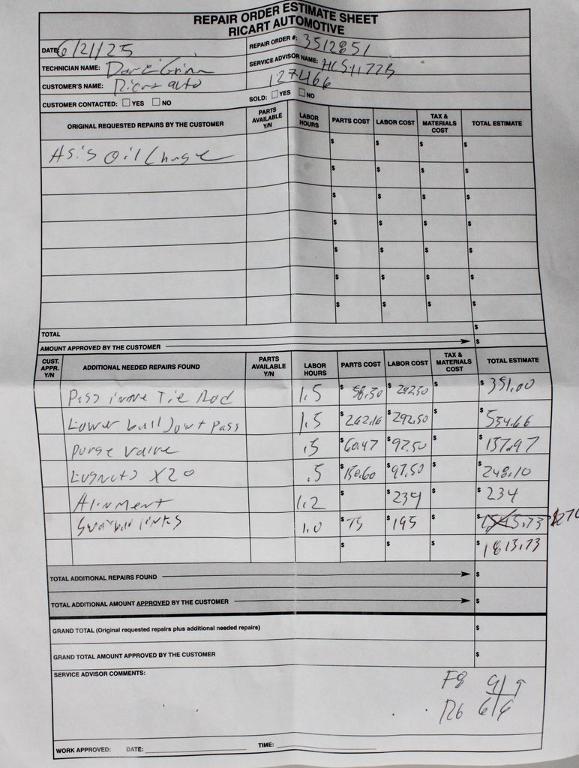 REPAIR ORDER ESTIMATE SHEET
RICART AUTOMOTIVE
DATE: 6/21/25 REPAIR ORDER #: 3512851
TECHNICIAN NAME: SERVICE ADVISOR NAME:
CUSTOMER'S NAME: Ricart auto 127466
CUSTOMER CONTACTED: YES NO SOLD: YES NO
ORIGINAL REQUESTED REPAIRS BY THE CUSTOMER PARTS AVAILABLE Y/N LABOR HOURS PARTS COST LABOR COST TAX & MATERIALS COST TOTAL ESTIMATE
Oil Change $ $ $ $
$ $ $ $
$ $ $ $
$ $ $ $
$ $ $ $
$ $ $ $
$ $ $ $
TOTAL $
AMOUNT APPROVED BY THE CUSTOMER $
CUST. APPR. Y/N ADDITIONAL NEEDED REPAIRS FOUND PARTS AVAILABLE Y/N LABOR HOURS PARTS COST LABOR COST TAX & MATERIALS COST TOTAL ESTIMATE
Pass Tie Rod 1.5 $58.50 $292.50 $351.00
Lower ball Joint pass 1.5 $262.16 $292.50 $554.66
purge valve .5 $60.47 $97.50 $157.97
Lugnuts x20 .5 $150.60 $97.50 $248.10
Alinment 1.2 $ $234 $234
Swaybar links 1.0 $75 $195 $1545.73 $270
$ $ $1815.73
TOTAL ADDITIONAL REPAIRS FOUND $
TOTAL ADDITIONAL AMOUNT APPROVED BY THE CUSTOMER $
GRAND TOTAL (Original requested repairs plus additional needed repairs) $
GRAND TOTAL AMOUNT APPROVED BY THE CUSTOMER $
SERVICE ADVISOR COMMENTS:
F8 9/9
R6 6/6
WORK APPROVED: DATE: TIME: